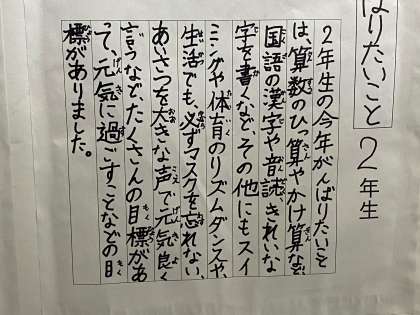 ばりたいこと 2年生
2年生の今年がんばりたいこと
は、算数のひっ算やかけ算など、
国語の漢字や音読、きれいな
字を書くなど、その他にもスイ
ミングや体育のリズムダンスや、
生活でも、必ずマスクを忘れない、
あいさつを大きな声で元気良く
言うなど、たくさんの目標があ
って、元気に過ごすことなどの目
標がありました。